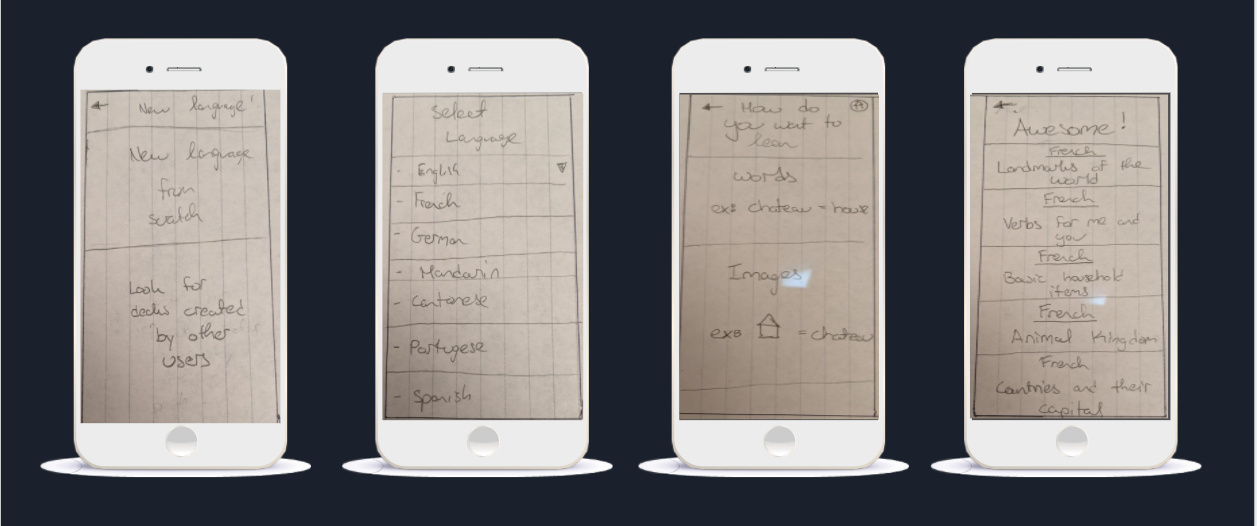 New language!
New language
from
scratch
Look for
decks created
by other
users
Select
Language
- English
- French
- German
- Mandarin
- Cantonese
- Portugese
- Spanish
How do
you want to
lean
words
ex: chateau = house
Images
ex: = chateau
Awesome!
French
Landmarks of the
world
French
Verbs for me and
you
French
Basic household
items
French
Animal Kingdom
French
Countries and their
capital